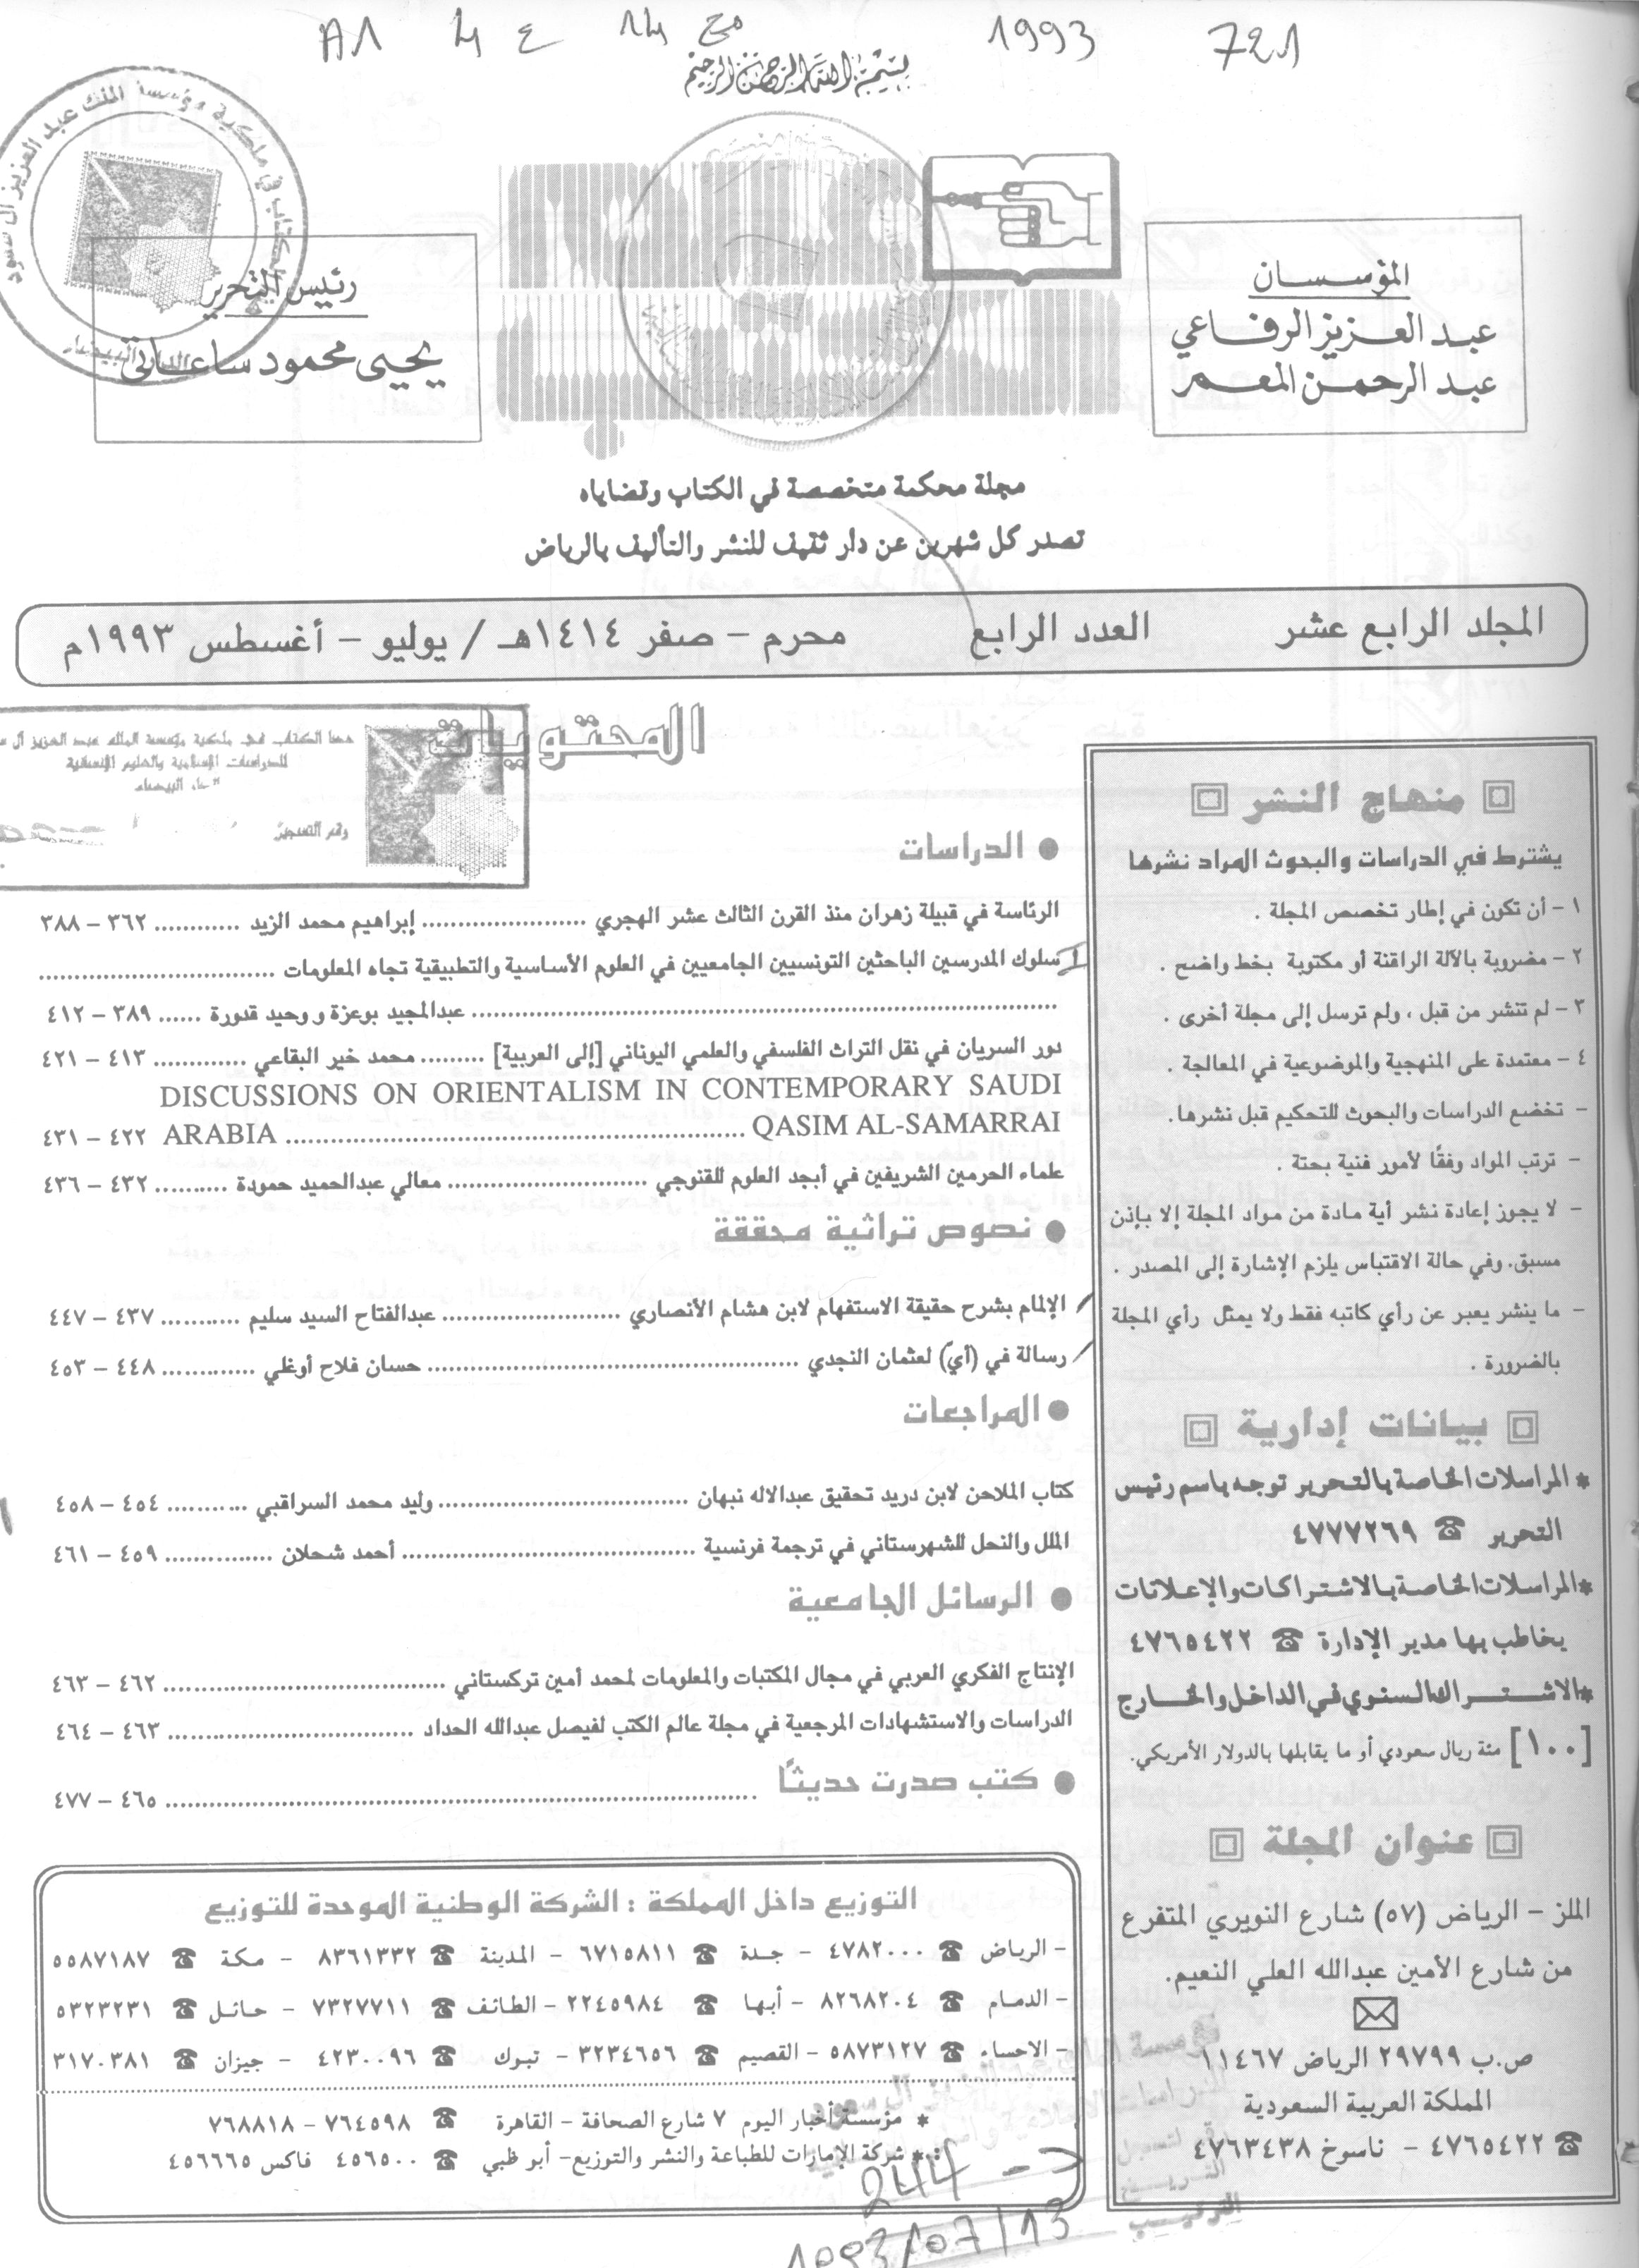 721 1993 مج 14 ع 4 A1
بسم الله الرحمن الرحيم
المؤسسان
عبد العزيز الرفاعي
عبد الرحمن المعمر
رئيس التحرير
يحيى محمود ساعاتي
مجلة محكمة متخصصة في الكتاب وقضاياه
تصدر كل شهرين عن دار ثقيف للنشر والتأليف بالرياض
المجلد الرابع عشر العدد الرابع محرم - صفر ١٤١٤هـ / يوليو - أغسطس ١٩٩٣م
منهاج النشر
يشترط في الدراسات والبحوث المراد نشرها
١ - أن تكون في إطار تخصص المجلة .
٢ - مضروبة بالآلة الراقنة أو مكتوبة بخط واضح .
٣ - لم تنشر من قبل ، ولم ترسل إلى مجلة أخرى .
٤ - معتمدة على المنهجية والموضوعية في المعالجة .
- تخضع الدراسات والبحوث للتحكيم قبل نشرها.
- ترتب المواد وفقًا لأمور فنية بحتة .
- لا يجوز إعادة نشر أية مادة من مواد المجلة إلا بإذن
مسبق. وفي حالة الاقتباس يلزم الإشارة إلى المصدر .
- ما ينشر يعبر عن رأي كاتبه فقط ولا يمثل رأي المجلة
بالضرورة .
بيانات إدارية
* المراسلات الخاصة بالتحرير توجه باسم رئيس
التحرير ☎ ٤٧٧٧٢٦٩
* المراسلات الخاصة بالاشتراكات والإعلانات
يخاطب بها مدير الإدارة ☎ ٤٧٦٥٤٢٢
* الاشتراك السنوي في الداخل والخارج
[١٠٠] مئة ريال سعودي أو ما يقابلها بالدولار الأمريكي.
عنوان المجلة
الملز - الرياض (٥٧) شارع النويري المتفرع
من شارع الأمين عبدالله العلي النعيم.
ص.ب ٢٩٧٩٩ الرياض ١١٤٦٧
المملكة العربية السعودية
☎ ٤٧٦٥٤٢٢ - ناسوخ ٤٧٦٣٤٣٨
المحتويات
هذا الكتاب في ملكية مؤسسة الملك عبد العزيز آل س
للدراسات الإسلامية والعلوم الإنسانية
رقم التسجيل
● الدراسات
الرئاسة في قبيلة زهران منذ القرن الثالث عشر الهجري ........ إبراهيم محمد الزيد ........ ٣٦٢ - ٣٨٨
سلوك المدرسين الباحثين التونسيين الجامعيين في العلوم الأساسية والتطبيقية تجاه المعلومات ........
........ عبدالمجيد بوعزة و وحيد قدورة ...... ٣٨٩ - ٤١٢
دور السريان في نقل التراث الفلسفي والعلمي اليوناني [إلى العربية] ......... محمد خير البقاعي ........ ٤١٣ - ٤٢١
DISCUSSIONS ON ORIENTALISM IN CONTEMPORARY SAUDI
ARABIA ........ QASIM AL-SAMARRAI ٤٢٢ - ٤٣١
علماء الحرمين الشريفين في أبجد العلوم للقنوجي ........ معالي عبدالحميد حمودة .......... ٤٣٢ - ٤٣٦
● نصوص تراثية محققة
الإلمام بشرح حقيقة الاستفهام لابن هشام الأنصاري ........ عبدالفتاح السيد سليم ........... ٤٣٧ - ٤٤٧
رسالة في (أيّ) لعثمان النجدي ........ حسان فلاح أوغلي ........ ٤٤٨ - ٤٥٣
● المراجعات
كتاب الملاحن لابن دريد تحقيق عبدالاله نبهان ........ وليد محمد السراقبي ........ ٤٥٤ - ٤٥٨
الملل والنحل للشهرستاني في ترجمة فرنسية ........ أحمد شحلان ........ ٤٥٩ - ٤٦١
● الرسائل الجامعية
الإنتاج الفكري العربي في مجال المكتبات والمعلومات لمحمد أمين تركستاني ........ ٤٦٢ - ٤٦٣
الدراسات والاستشهادات المرجعية في مجلة عالم الكتب لفيصل عبدالله الحداد ........ ٤٦٣ - ٤٦٤
● كتب صدرت حديثًا ........ ٤٦٥ - ٤٧٧
التوزيع داخل المملكة : الشركة الوطنية الموحدة للتوزيع
- الرياض ☎ ٤٧٨٢٠٠٠ - جدة ☎ ٦٧١٥٨١١ - المدينة ☎ ٨٣٦١٣٣٢ - مكة ☎ ٥٥٨٧١٨٧
- الدمام ☎ ٨٢٦٨٢٠٤ - أبها ☎ ٢٢٤٥٩٨٤ - الطائف ☎ ٧٣٢٧٧١١ - حائل ☎ ٥٣٢٣٢٣١
- الاحساء ☎ ٥٨٧٣١٢٧ - القصيم ☎ ٣٢٣٤٦٥٦ - تبوك ☎ ٤٢٣٠٠٩٦ - جيزان ☎ ٣١٧٠٣٨١
* مؤسسة أخبار اليوم ٧ شارع الصحافة - القاهرة ☎ ٧٦٤٥٩٨ - ٧٦٨٨١٨
* شركة الإمارات للطباعة والنشر والتوزيع - أبو ظبي ☎ ٤٥٦٥٠٠ فاكس ٤٥٦٦٦٥